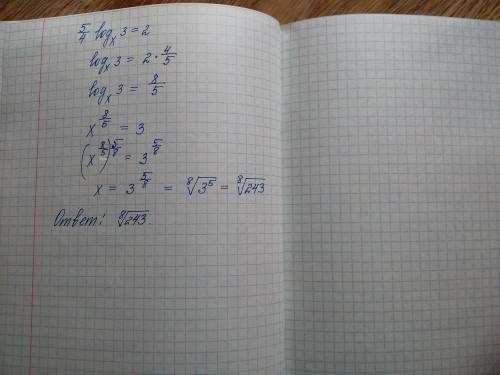 5/4 logₓ 3 = 2
logₓ 3 = 2 · 4/5
logₓ 3 = 8/5
x^(8/5) = 3
(x^(8/5))^(5/8) = 3^(5/8)
x = 3^(5/8) = ⁸√(3⁵) = ⁸√243
Ответ: ⁸√243.